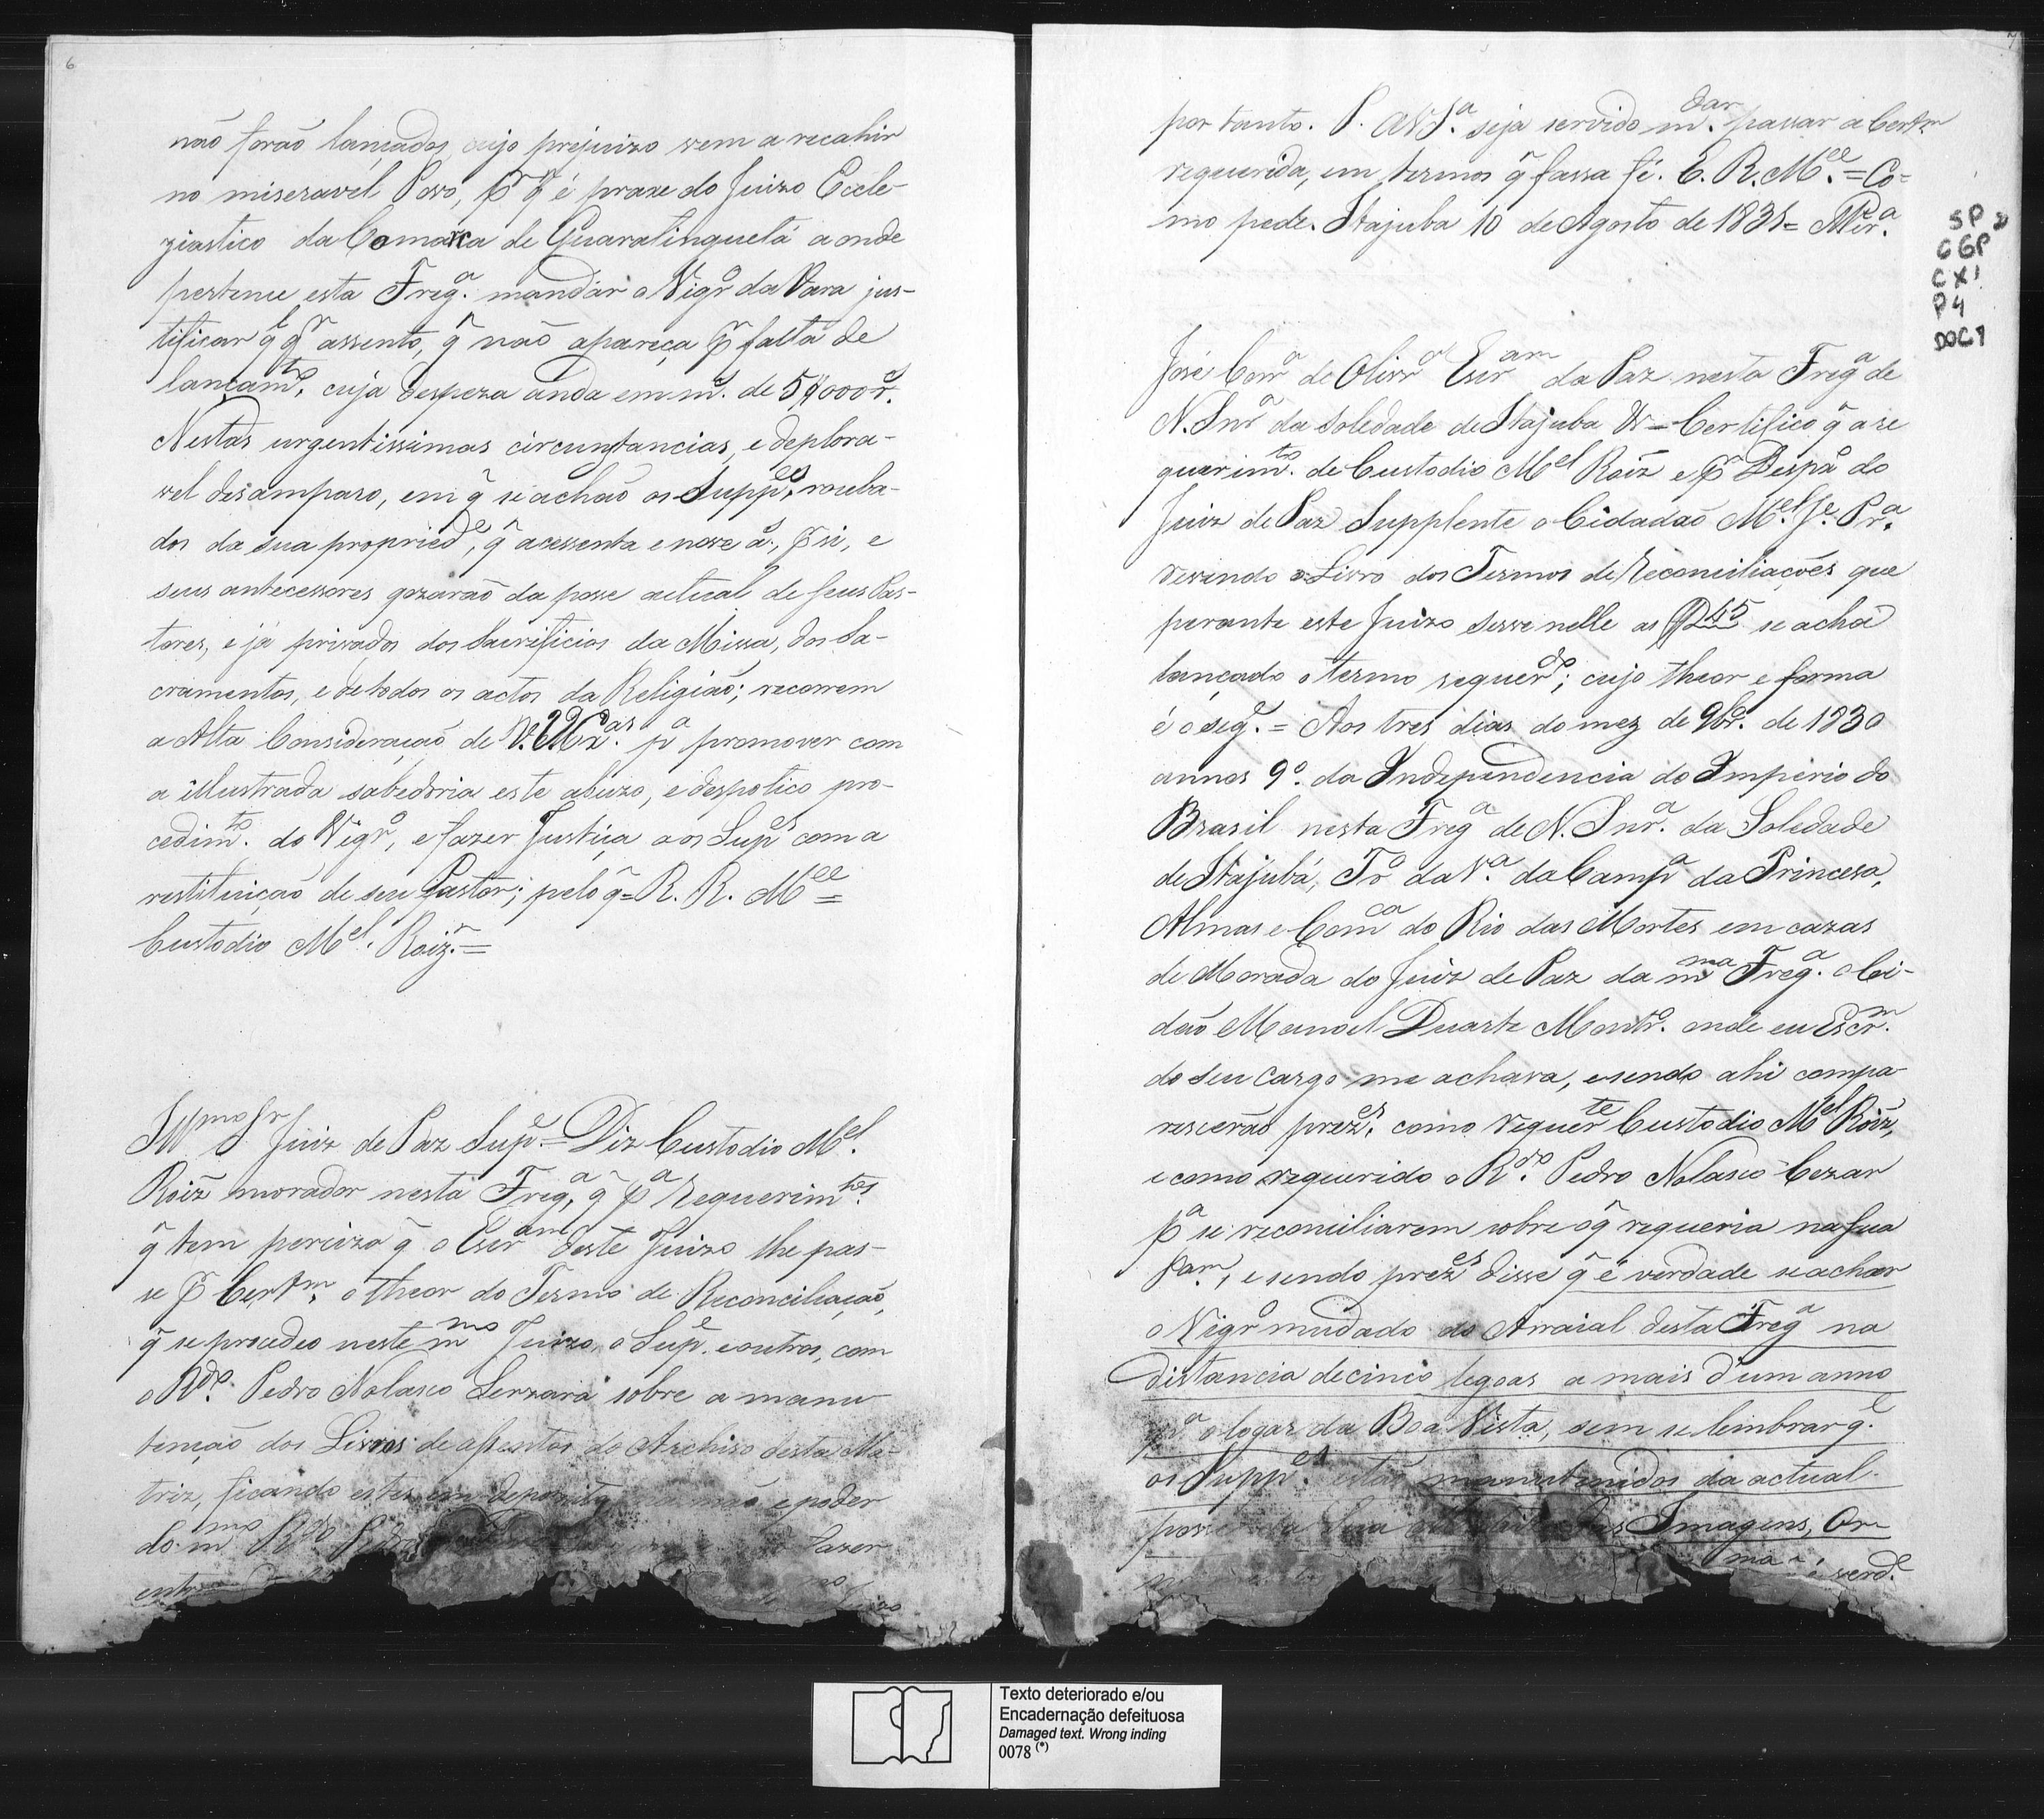 6
não forão lançados, cujo prejuizo vem a recahir
no miseravel Povo, pr q̃ é praxe do Juizo Eccle-
ziastico da Comarca de Guaratinguetá aonde
pertence esta Freg.ª mandar o Vigrº da Vara jus-
tificar q.l q.r assento, q̃ não apareça pr falta de
lançam.to, cuja despeza anda em m.s de 5$000 r.s
Nestas urgentissimas circunstancias, e deplora-
vel desamparo, em q̃ se achão os Supp.es, rouba-
dos da sua propried.e, q̃ a cessenta e nove a.s, pr si, e
seus antecessores gozarão da posse actual de seus Pas-
tores, e já privados dos Sacrificios da Missa, dos Sa-
cramentos, e de todos os actos da Religião; recorrem
a Alta Consideração de V. EEx.as p.a promover com
a illustrada sabedoria este abuzo, e despotico pro-
cedim.to do Vigrº, e fazer Justiça aos Sup.es com a
restituição de seu Pastor; pelo q̃ = R. R. M.ce =
Custodio M.el Roiz. =
Ill.mo Sr Juiz de Paz Sup.e = Diz Custodio M.el
Roiz morador nesta Freg.a, q̃ p.a Requerim.tos
q̃ tem percizo q̃ o Escr.am deste Juizo lhe pas-
se pr Cert.m o theor do Termo de Reconciliação,
q̃ se procedeo neste m.mo Juizo, o Sup.e e outros, com
o R.do Pedro Nolasco Serzara sobre a manu
tenção dos Livros de assentos do Archivo desta Ma-
triz, ficando estes em deposito na mão e poder
do m.mo R.do Pedro fazer
7
por tanto. P. a V. S.a seja servido m.dar passar a Cert.m
requerida, em termos q̃ fassa fé. E. R. M.ce = Co=
mo pede. Itajuba 10 de Agosto de 1831 = Per.a
SP
GGP
CX1
P4
DOC1
José Corr.a de Olivr.a Escr.am da Paz nesta Freg.a de
N. Snr.a da Soledade de Itajuba V = Certifico q̃ a re
querim.to de Custodio M.el Roiz e pr Despº do
Juiz de Paz Supplente o Cidadão M.el J.e Pr.a
revendo o Livro dos Termos de Reconciliações que
perante este Juizo serve nelle as f 45 se acha
lançado o termo requer.do; cujo theor e forma
é o seg.e = Aos tres dias do mez de 9br.o de 1830
annos 9.º da Independencia do Imperio do
Brasil nesta Freg.a de N. Snr.a da Soledade
de Itajubá, Tr.o da V.a da Camp.a da Princesa,
Almas e Com.ca do Rio das Mortes em cazas
de Morada do Juiz de Paz da m.ma Freg.a o Ci-
dão Manoel Duarte Montr.o onde eu Escr.m
do seu cargo me achava, e sendo ahi compa
rescerão prez.es, como requer.te Custodio M.el Roiz,
e como requerido o R.do Pedro Nolasco Cezar
p.a se reconciliarem sobre o q̃ requeria na sua
P.am, e sendo prez.es disse q̃ é verdade se achar
o Vigr.o mudado do Arraial desta Freg.a na
distancia de cinco legoas a mais d'um anno
p.a o logar da Boa Vista, sem se lembrar q.e
os Supp.es estão manutenidos da actual
posse da Sua das Imagens, Or-
é verd.e
Texto deteriorado e/ou
Encadernação defeituosa
Damaged text. Wrong inding
0078 (*)